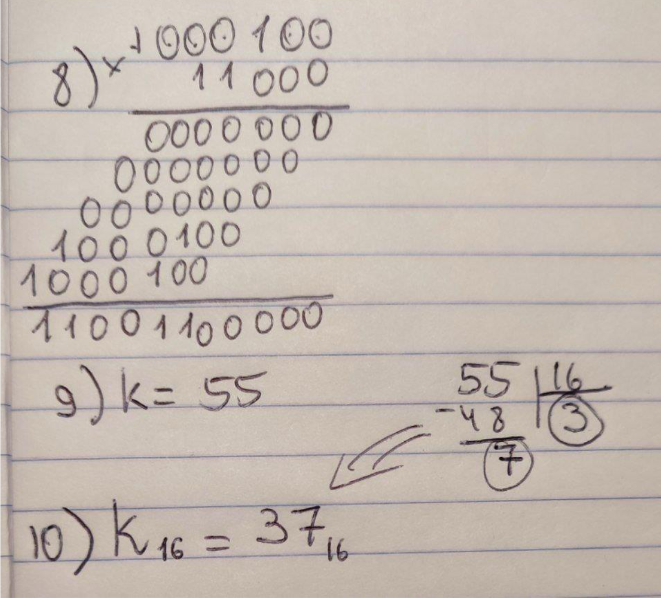 8) × 1000100
11000
0000000
0000000
0000000
1000100
1000100
11001100000
9) k = 55
55 | 16
- 48 3
7
10) K₁₆ = 37₁₆